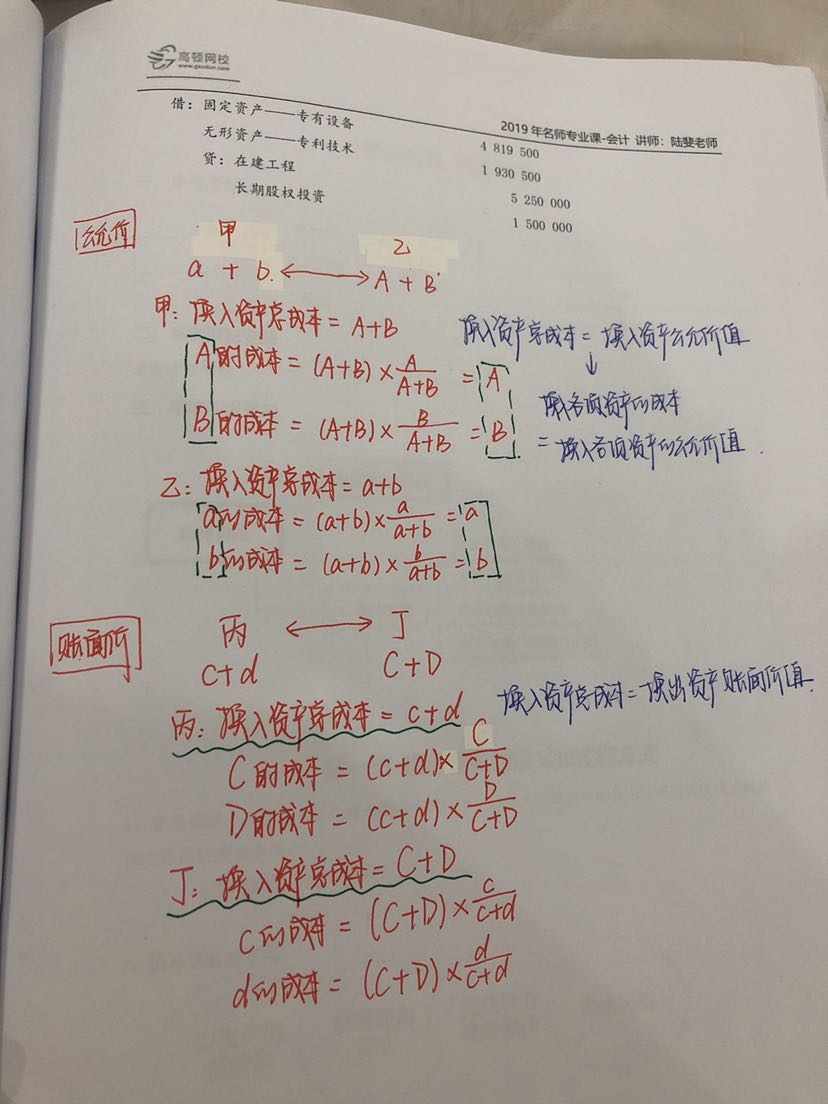 高顿网校
www.gaodun.com
2019 年名师专业课-会计 讲师：陆斐老师
借：固定资产——专有设备 4 819 500
无形资产——专利技术 1 930 500
贷：在建工程 5 250 000
长期股权投资 1 500 000
公允价
甲 乙
a + b ⟷ A + B
甲：换入资产总成本 = A+B
A的成本 = (A+B) × A/(A+B) = A
B的成本 = (A+B) × B/(A+B) = B
换入资产总成本 = 换入资产公允价值
↓
换入各项资产的成本
= 换入各项资产的公允价值.
乙：换入资产总成本 = a+b
a的成本 = (a+b) × a/(a+b) = a
b的成本 = (a+b) × b/(a+b) = b
账面价
丙 ⟷ 丁
c+d C+D
丙：换入资产总成本 = c+d
换入资产总成本 = 换出资产账面价值.
C的成本 = (c+d) × C/(C+D)
D的成本 = (c+d) × D/(C+D)
丁：换入资产总成本 = C+D
c的成本 = (C+D) × c/(c+d)
d的成本 = (C+D) × d/(c+d)